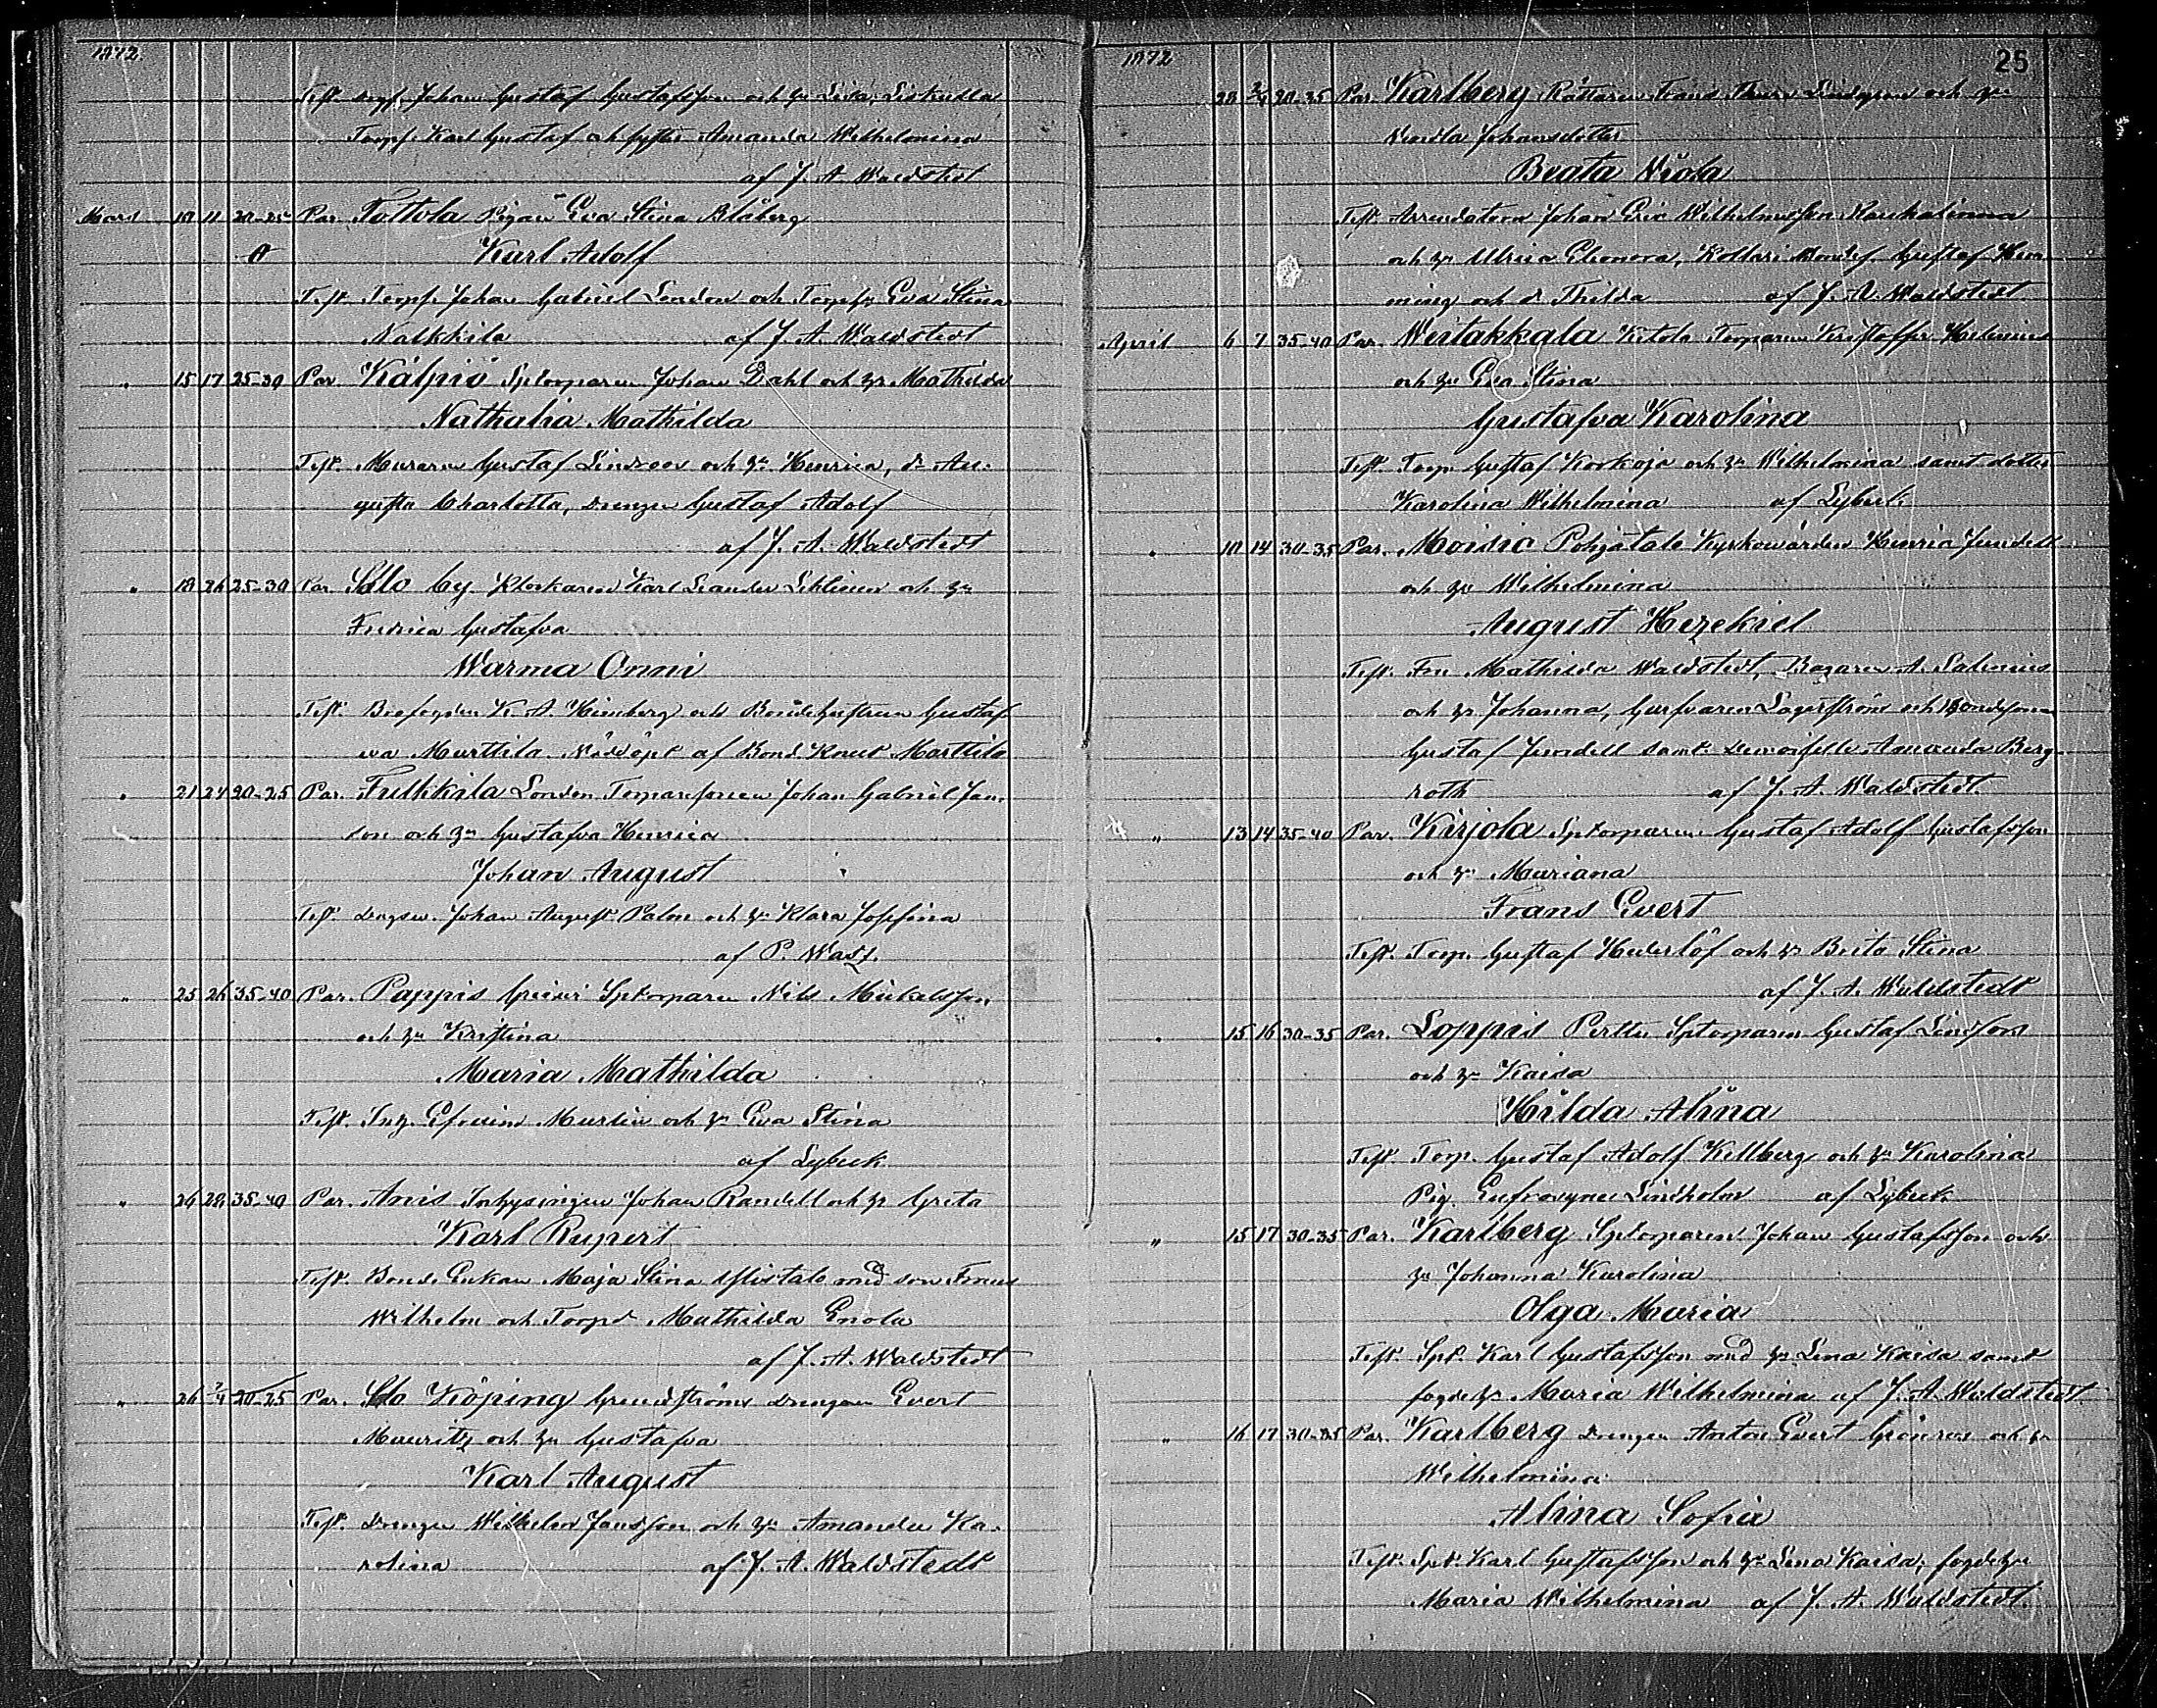 1872.
Test. Johan Gustaf Gustafsson och h. Lisa,
Torp. Karl Gustaf och syster Amanda Wilhelmina
af J. A. Waldstedt
Mars 10 11 20-25 Par. Tottola Pigan Eva Stina Blåberg
Karl Adolf
Test. Torp. Johan Gabriel London och Eva Stina
Nalkkila af J. A. Waldstedt
" 15 17 25-30 Par. Kälpiö Sptorparen Johan Dahl och h. Mathilda
Nathalia Mathilda
Test. Muraren Gustaf Lindroos och hu Henrica, dr Au-
gusta Charlotta, Drengen Gustaf Adolf
af J. A. Waldstedt
" 18 26 25-30 Par. Salo by. Klockaren Karl Leander och hu
Fredrica Gustafva
Warma Onni
Test. K. A. Heinberg och Gustaf-
va Marttila. Nöddöpt af Bond. Knut Marttila
" 21 24 20-25 Par. Fulkkila London Torparesonen Johan Gabriel Jan-
son och hu Gustafva Henrica
Johan August
Test. Drengen Johan August Palon och hu Klara Josefina
af P. Wasz.
" 25 26 35-40 Par. Pappis Sptorparen Nils Mickelsson
och hu Kristina
Maria Mathilda
Test. Inh. Efraim Murlin och hu Eva Stina
af Lybeck
" 26 28 35-40 Par. Anis Inhysingen Johan Randell och h. Greta
Karl Rupert
Test. Bonde Enkan Maja Stina Ylistalo med son Frans
Wilhelm och Torpd Mathilda Enola
af J. A. Waldstedt
" 26 7/4 20-25 Par. Salo Köping Grundströms Drengen Evert
Mauritz och hu Gustafva
Karl August
Test. Drengen Wilhelm Jansson och hu Amanda Ka-
rolina af J. A. Waldstedt
1872 25
28 2/4 20-25 Par. Karlberg Rättaren Frans Lindgren och hu
Wendla Johansdotter
Beata Wiola
Test. Arrendatorn Johan Eric Wilhelmsson
och hu Ulrica Eleonora, Kottari Bondes. Gustaf Hem-
ming och d. Thilda af J. A. Waldstedt
April 6 7 35-40 Par. Weitakkala Kitola Torparen Kristoffer Helenius
och hu Eva Stina
Gustafva Karolina
Test. Torp. Gustaf Korkoja och hu Wilhelmina samt dotter
Karolina Wilhelmina af Lybeck
" 10 14 30-35 Par. Moisio Pohjatalo Kyrkowärden Henric Jundell
och hu Wilhelmina
August Hezekiel
Test. Fru Mathilda Waldstedt, Bagaren A. Salenius
och hr Johanna, Garfvaren Lagerström och Bondsonen
Gustaf Jundell samt Demoiselle Amanda Berg-
roth af J. A. Waldstedt
" 13 14 35-40 Par. Kirjola Sptorparen Gustaf Adolf Gustafsson
och hu Mariana
Frans Evert
Test. Torp. Gustaf Hederlöf och h. Brita Stina
af J. A. Waldstedt
" 15 16 30-35 Par. Loppis Perttu Sptorparen Gustaf Lindfors
och hu Kaisa
Hilda Alina
Test. Torp. Gustaf Adolf Kellberg och hu Karolina
Pig. Eufrosyne Lindholm af Lybeck
" 15 17 30-35 Par. Karlberg Sptorparen Johan Gustafsson och
hu Johanna Karolina
Olga Maria
Test. Spt. Karl Gustafsson med hu Lena Kaisa samt
fogdehu Maria Wilhelmina af J. A. Waldstedt
" 16 17 30-35 Par. Karlberg Drengen Anton Evert Grönroos och hu
Wilhelmina
Alina Sofia
Test. Spt. Karl Gustafsson och hu Lena Kaisa, fogdehu
Maria Wilhelmina af J. A. Waldstedt